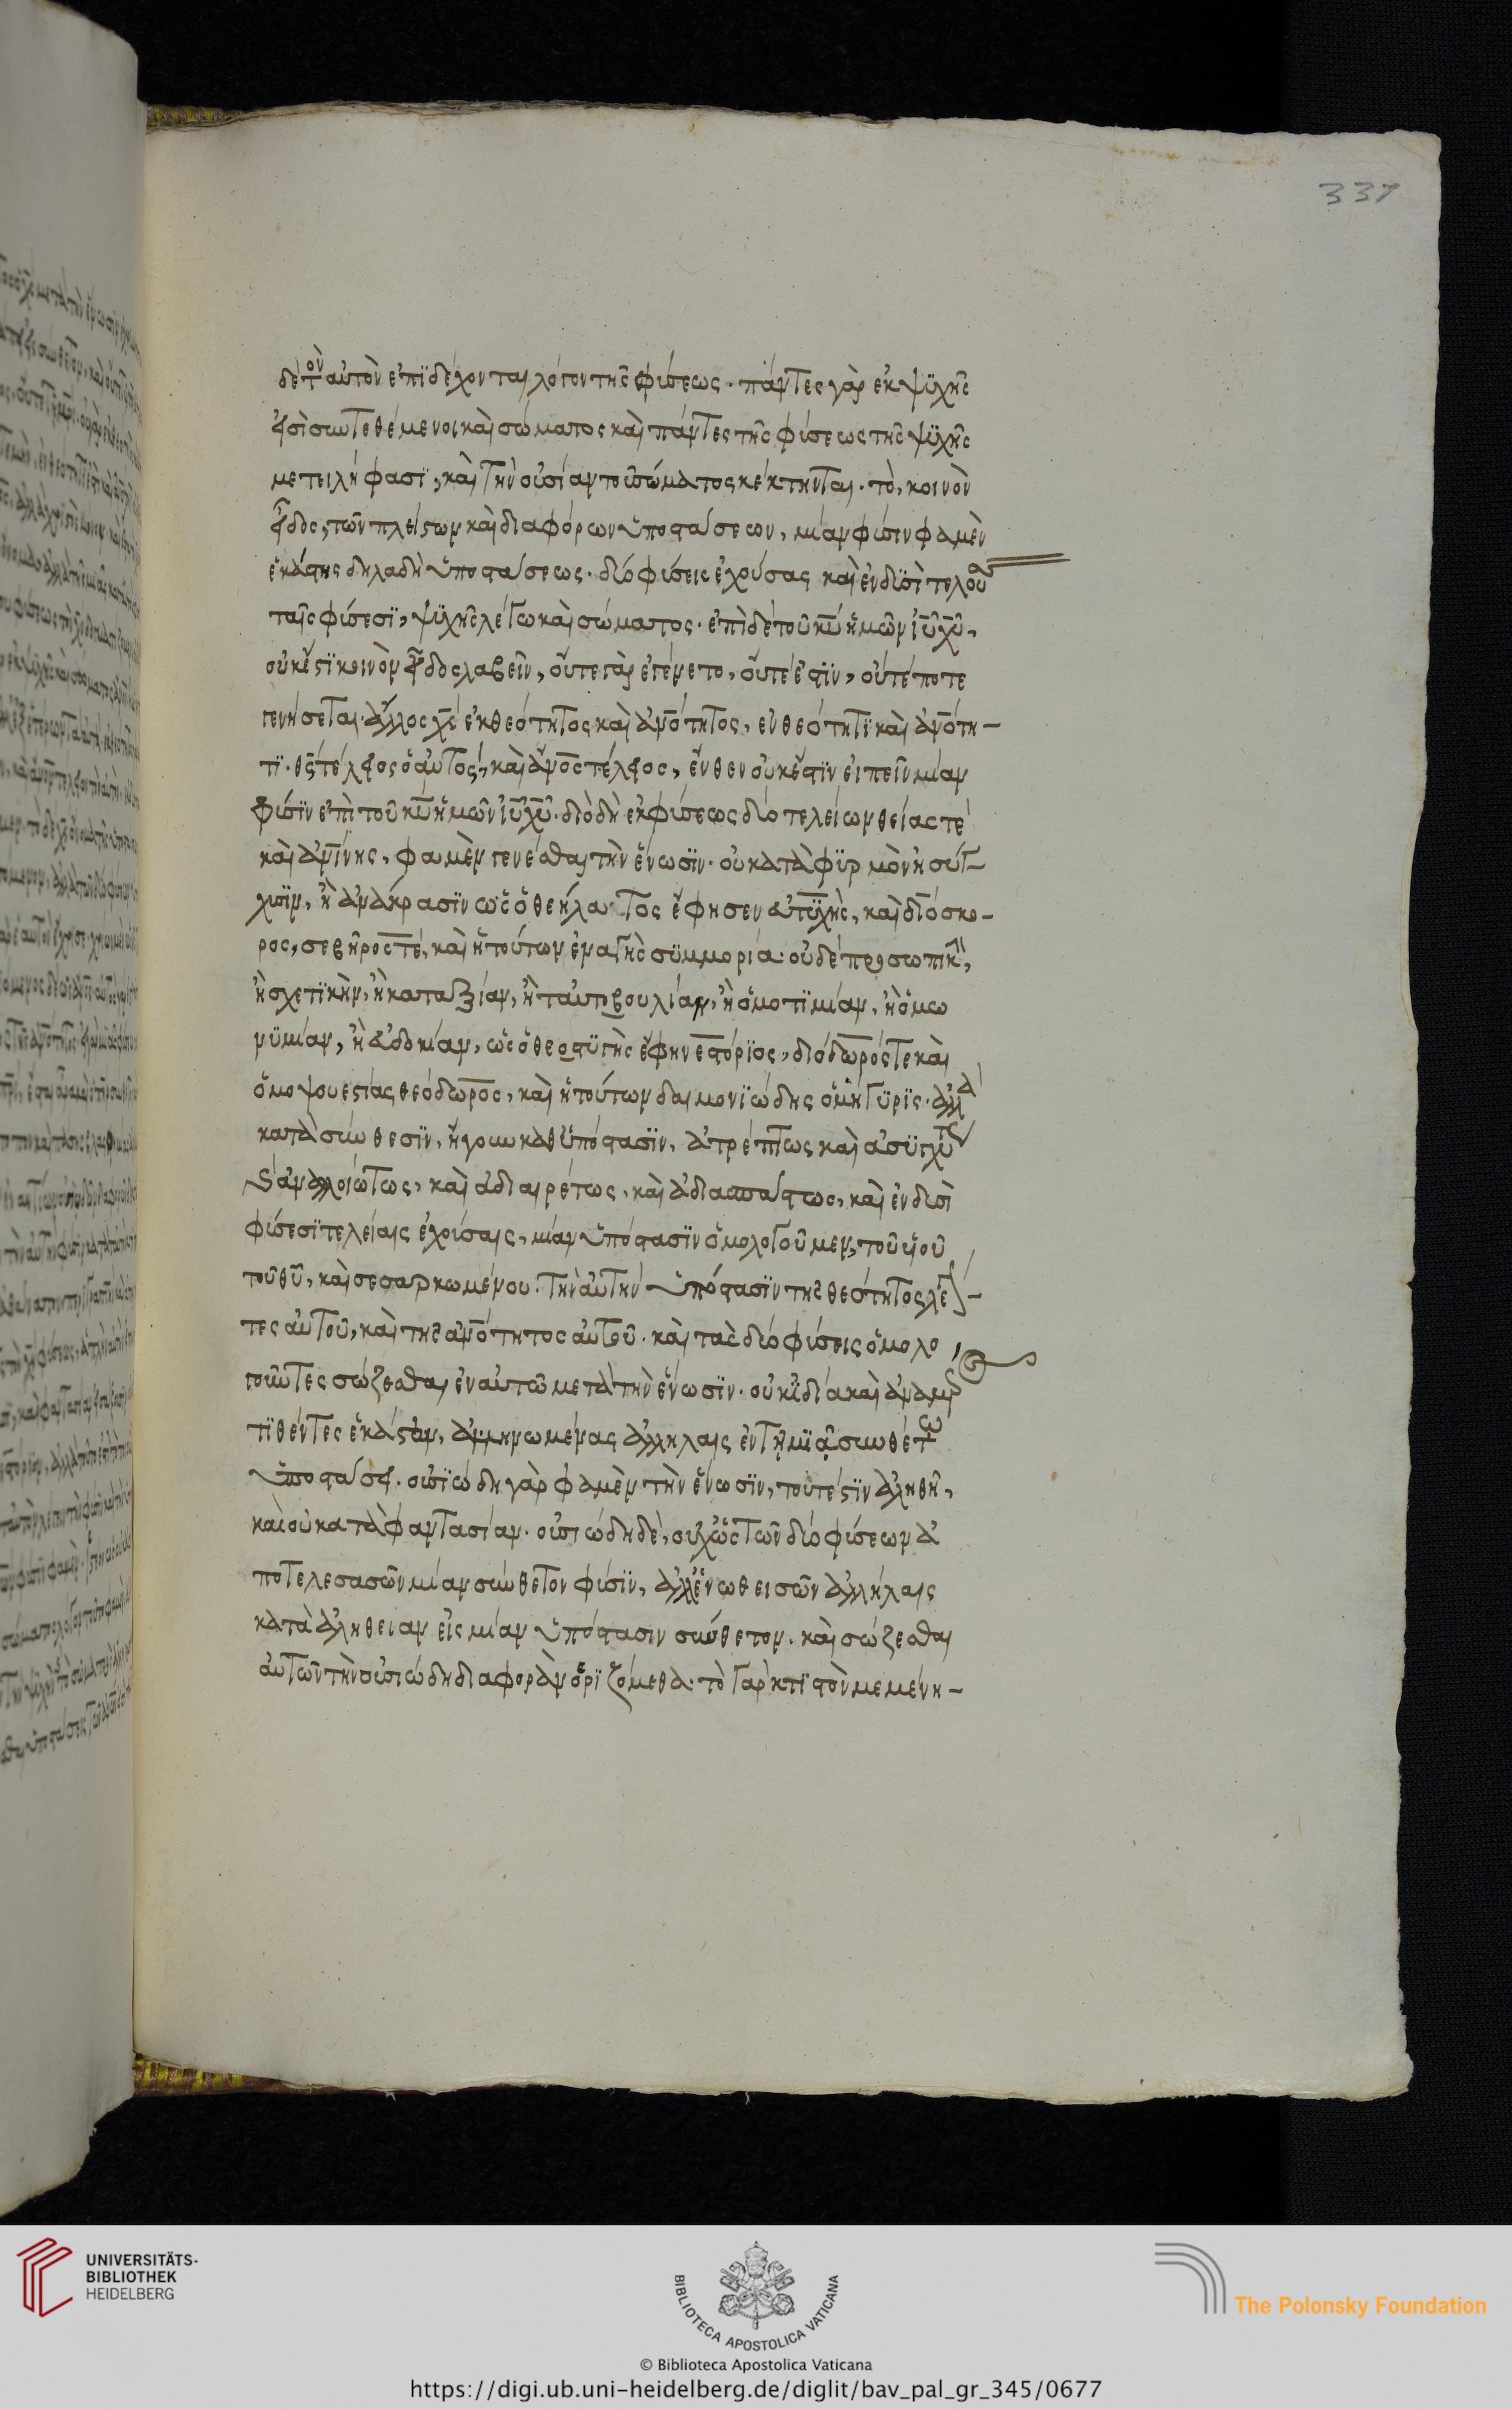 337
δὲ τὸν αὐτὸν ἐπιδέχονται λόγον τῆς φύσεως· πάντες γὰρ ἐκ ψυχῆς
εἰσὶ συντεθέμενοι καὶ σώματος καὶ πάντες τῆς φύσεως τῆς ψυχῆς
μετειλήφασι, καὶ τὴν οὐσίαν τοῦ σώματος κέκτηνται. τὸ, κοινὸν
εἶδος, τῶν πλείστων καὶ διαφόρων ὑποστάσεων, μίαν φύσιν φαμὲν
ἑκάστης δηλαδὴ ὑποστάσεως· δύο φύσεις ἐχούσας καὶ ἐν δυσὶ τελού
ταῖς φύσεσι, ψυχῆς λέγω καὶ σώματος· ἐπὶ δὲ τοῦ κ͞υ ἡμῶν ι͞υ χ͞υ,
οὐκ ἔστι κοινὸν εἶδος λαβεῖν, οὔτε γὰρ ἐγένετο, οὔτε ἐστὶν, οὔτέ ποτε
γενήσεται ἄλλος χ͞ς ἐκ θεότητος καὶ ἀν͞οτητος, ἐν θεότητι καὶ ἀν͞οτη-
τι· θ͞ς τέλειος ὁ αὐτός, καὶ ἄν͞ος τέλειος, ἔνθεν οὐκ ἔστιν εἰπεῖν μίαν
φύσιν ἐπὶ τοῦ κ͞υ ἡμῶν ι͞υ χ͞υ· διὸ δὴ ἐκ φύσεως δύο τελείων θείας τὲ
καὶ ἀν͞ινης, φαμὲν γενέσθαι τὴν ἕνωσιν· οὐ κατὰ φυρμὸν ἢ σύγ-
χυσιν, ἢ ἀνάκρασιν ὡς ὁ θεήλατος ἔφησεν εὐτυχὴς, καὶ διόσκο-
ρος, σεβῆρος τὲ, καὶ ἡ τούτων ἐναγὴς συμμορία· οὐδὲ προσωπικὴν,
ἢ σχετικὴν, ἢ κατ' ἀξίαν, ἢ ταυτοβουλίαν, ἢ ὁμοτιμίαν, ἢ ὁμω
νυμίαν, ἢ εὐδοκίαν, ὡς ὁ θεοστυγὴς ἔφη νεστόριος, διόδωρός τε καὶ
ὁ μοψουεστίας θεόδωρος, καὶ ἡ τούτων δαιμονιώδης ὁμήγυρις· ἀλλὰ
κατὰ σύνθεσιν, ἤγουν καθ' ὑπόστασιν, ἀτρέπτως καὶ ἀσυγχύτως
καὶ ἀναλλοιώτως, καὶ ἀδιαιρέτως, καὶ ἀδιασπάστως, καὶ ἐν δυσὶ
φύσεσι τελείαις ἐχούσαις, μίαν ὑπόστασιν ὁμολογοῦμεν, τοῦ υἱοῦ
τοῦ θ͞υ, καὶ σεσαρκωμένου. τὴν αὐτὴν ὑπόστασιν τῆς θεότητος λέγον-
τες αὐτοῦ, καὶ τῆς ἀν͞οτητος αὐτοῦ. καὶ τὰς δύο φύσεις ὁμολο
γοῦντες σώζεσθαι ἐν αὐτῷ μετὰ τὴν ἕνωσιν· οὐκ ἰδίᾳ καὶ ἀναμέρος
τιθέντες ἑκάστην, ἀλλ' ἡνωμένας ἀλλήλαις ἐν τῇ μιᾷ συνθέτῳ
ὑποστάσει. οὐσιώδη γὰρ φαμὲν τὴν ἕνωσιν, τουτέστιν ἀληθῆ,
καὶ οὐ κατὰ φαντασίαν· οὐσιώδη δὲ, οὐχ ὡς τῶν δύο φύσεων ἀ
ποτελεσασῶν μίαν σύνθετον φύσιν, ἀλλ' ἑνωθεισῶν ἀλλήλαις
κατὰ ἀλήθειαν εἰς μίαν ὑπόστασιν σύνθετον. καὶ σώζεσθαι
αὐτῶν τὴν οὐσιώδη διαφορὰν ὁριζόμεθα· τὸ γὰρ κτιστὸν μεμένη-
UNIVERSITÄTS-
BIBLIOTHEK
HEIDELBERG
BIBLIOTECA APOSTOLICA VATICANA
© Biblioteca Apostolica Vaticana
The Polonsky Foundation
https://digi.ub.uni-heidelberg.de/diglit/bav_pal_gr_345/0677